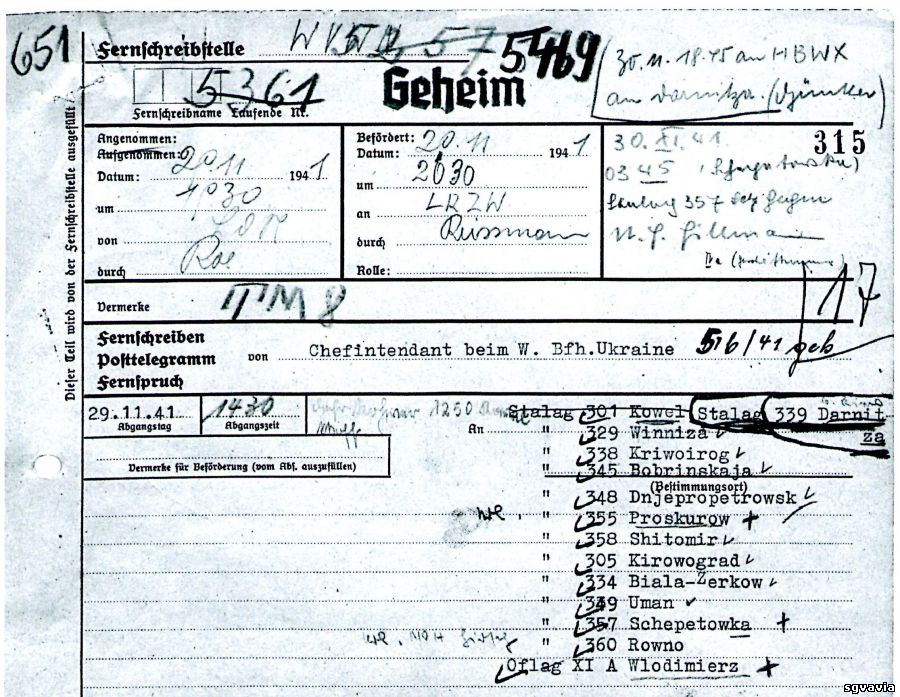 651
Fernschreibstelle
5469
5361
Geheim
30.11. 18.45 an HBWX
Fernschreibname Laufende Nr.
am Darnitza.
Dieser Teil wird von der Fernschreibstelle ausgefüllt.
Angenommen:
Aufgenommen:
Datum: 20.11 1941
um 1930
von
durch
Befördert:
Datum: 20.11 1941
um 2030
an LRZW
durch Rüssmann
Rolle:
30.XI.41 315
0345
Stalag 357
Vermerke TM 8
17
Fernschreiben
Posttelegramm von Chefintendant beim W. Bfh.Ukraine 516/41 geh
Fernspruch
29.11.41 1430
Abgangstag Abgangszeit
An
Vermerke für Beförderung (vom Abs. auszufüllen)
Stalag 301 Kowel Stalag 339 Darnitza
" 329 Winniza
" 338 Kriwoirog
" 345 Bobrinskaja
(Bestimmungsort)
" 348 Dnjepropetrowsk
" 355 Proskurow +
" 358 Shitomir
" 305 Kirowograd
" 334 Biala-Zerkow
" 349 Uman
" 357 Schepetowka +
" 360 Rowno
Oflag XI A Wlodimierz +
sgvavia